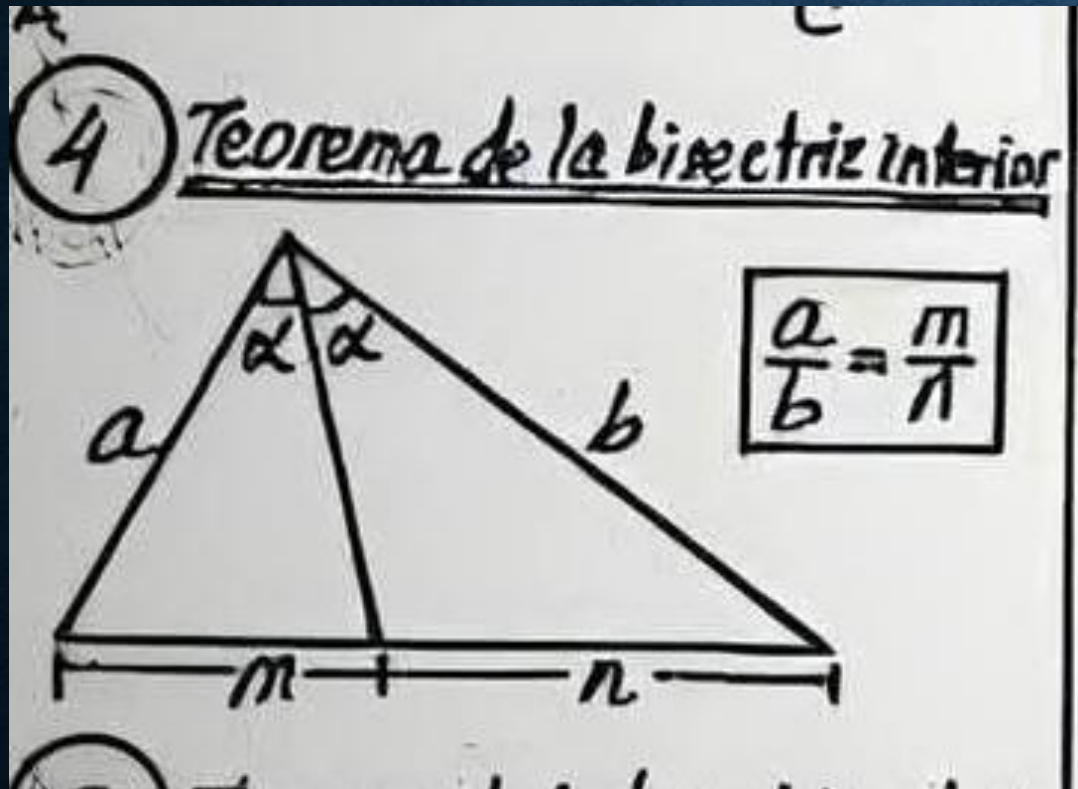 4 Teorema de la bisectriz interior
α α
a
b
a/b = m/n
m n